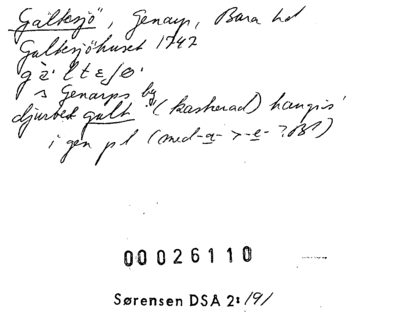 Gältesjö, Genarp, Bara hd
Galtesjöhuset 1742
gè·ltεʃø·
s Genarps by
djurbet galt (kastrerad) hangris'
i gen pl (med -a- > -e- ?, BP)
00026110
Sørensen DSA 2: 191